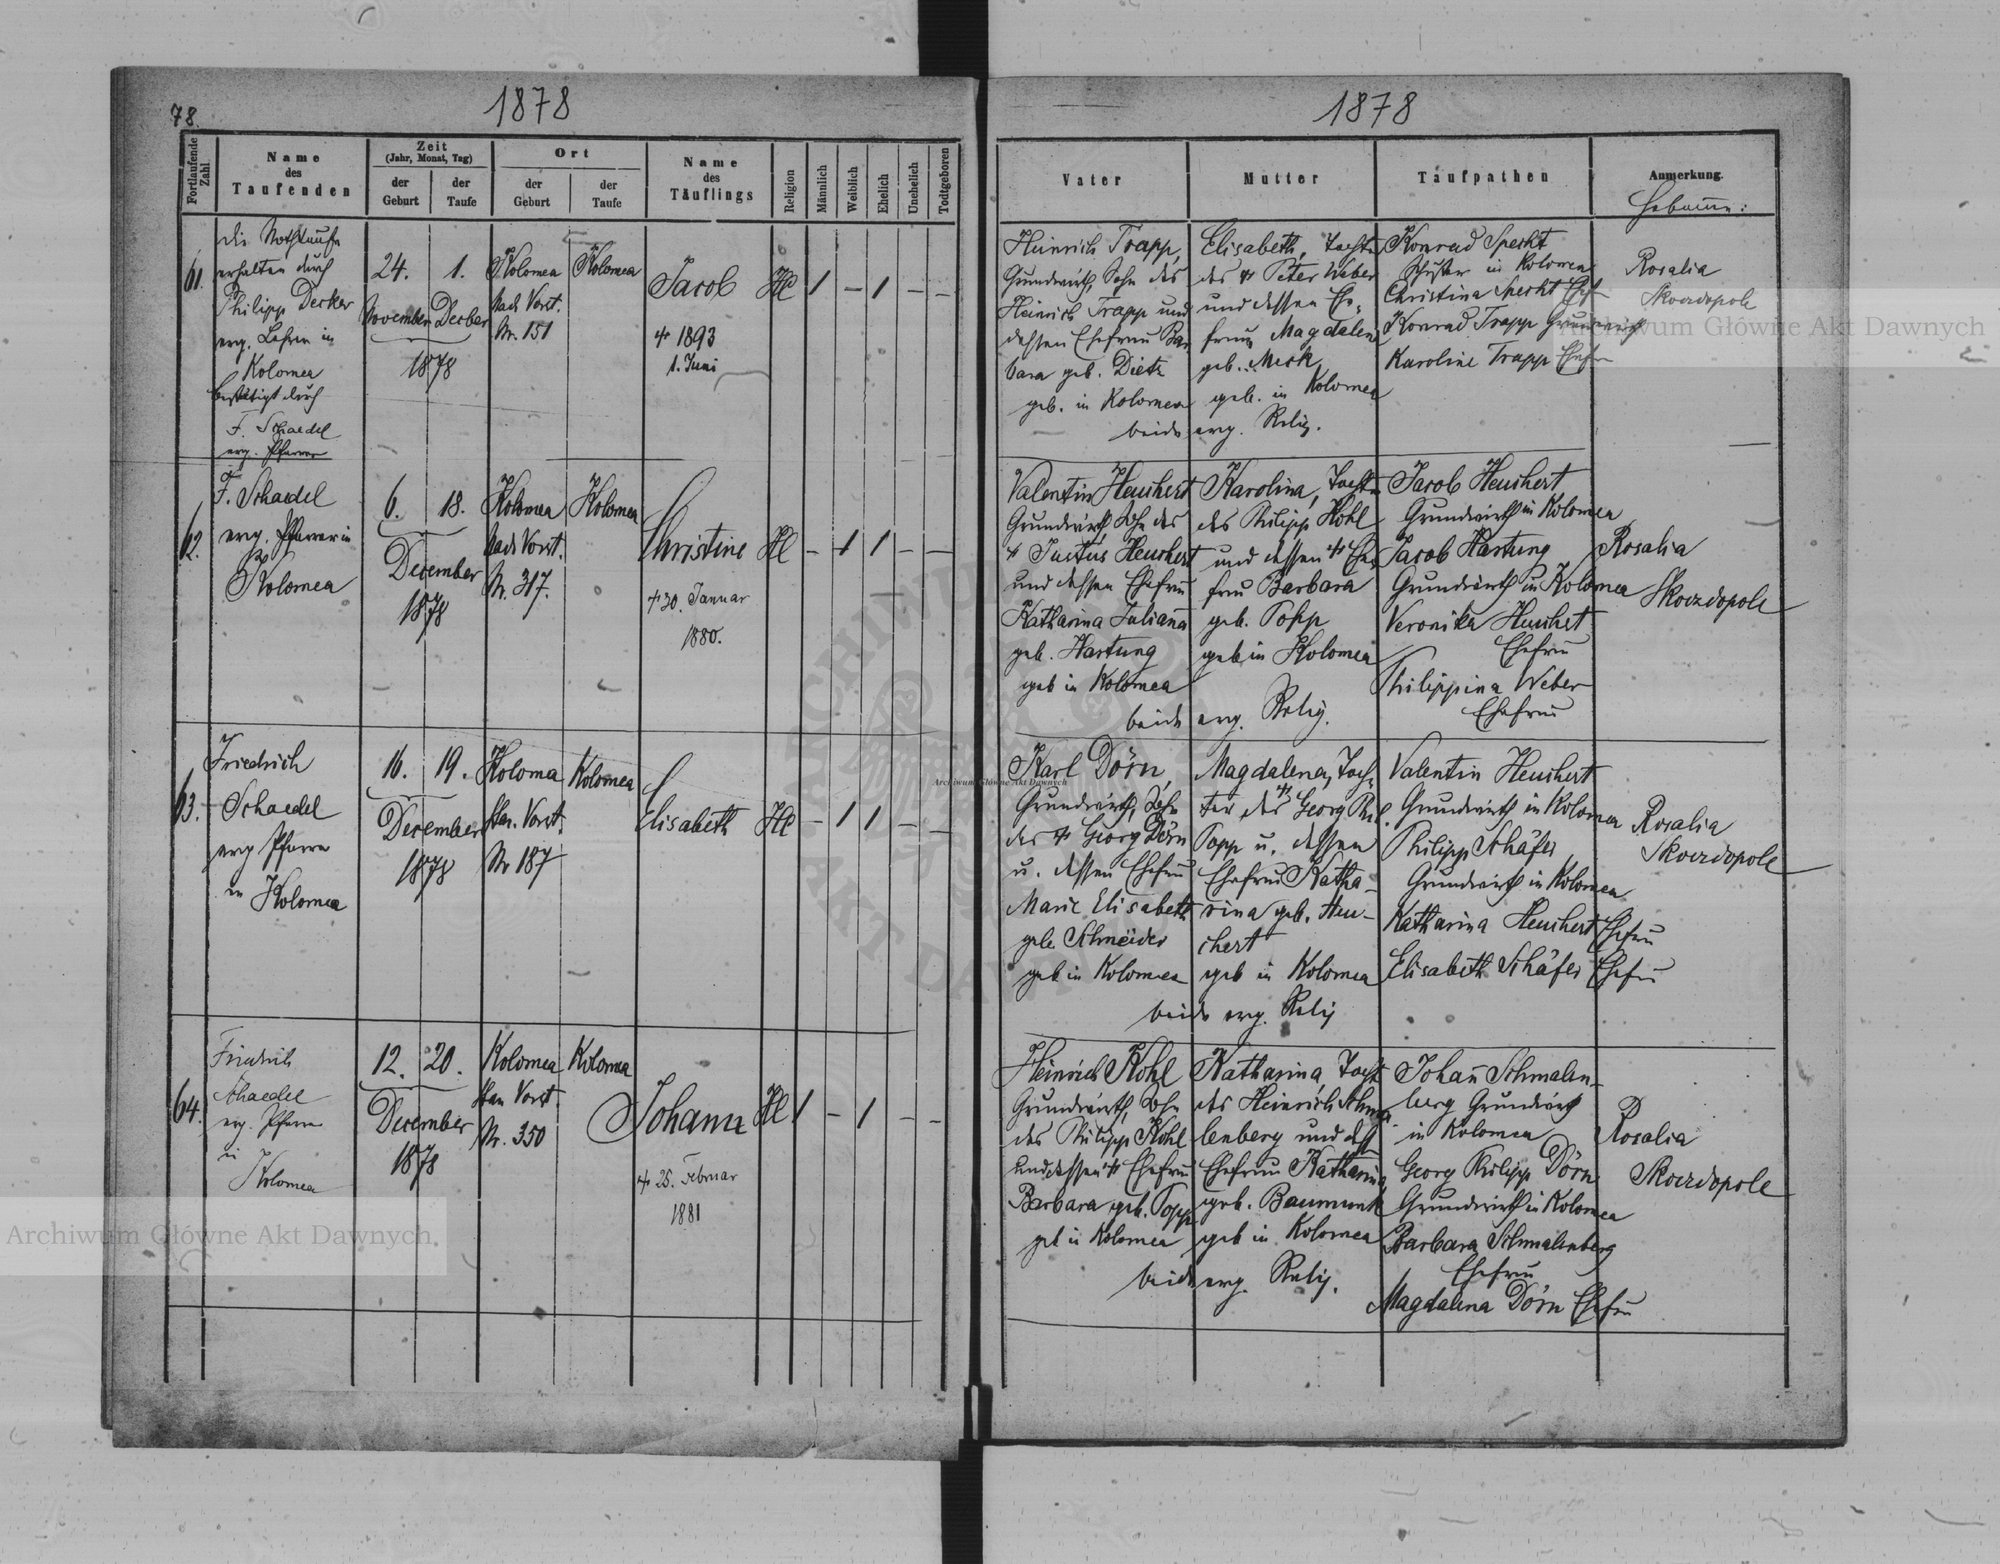 78.
1878
1878
Fortlaufende Zahl
Name
des
Taufenden
Zeit
(Jahr, Monat, Tag)
der
Geburt
der
Taufe
Ort
der
Geburt
der
Taufe
Name
des
Täuflings
Religion
Männlich
Weiblich
Ehelich
Unehelich
Todtgeboren
Vater
Mutter
Taufpathen
Anmerkung.
Hebamme:
61
die Nothtaufe
erhalten durch
Philipp Decker
evg. Lehrer in
Kolomea
bestätigt durch
F. Schaedel
evg. Pfarrer
24.
1.
November
Decber
1878
Kolomea
Nad. Vorst.
Nr. 151
Kolomea
Jacob
+ 1893
1. Juni
HC
1
–
1
–
–
Heinrich Trapp,
Grundwirth, Sohn des
Heinrich Trapp und
dessen Ehefrau Bar
bara geb. Dietz
geb. in Kolomea
Elisabeth, Tochter
des + Peter Weber
und dessen Ehe-
frau Magdalena
geb. Merk
geb. in Kolomea
beide evg. Relig.
Konrad Specht
Schuster in Kolomea
Christina Specht Ehef
Konrad Trapp Grundwirth
Karoline Trapp Ehefr
Rosalia
Skoczdopole
62.
F. Schaedel
evg. Pfarrer in
Kolomea
6.
18.
December
1878
Kolomea
Nad. Vorst.
Nr. 317.
Kolomea
Christine
+ 30. Januar
1880.
HC
–
1
1
–
–
Valentin Heuchert
Grundwirth, Sohn des
+ Justus Heuchert
und dessen Ehefrau
Katharina Juliana
geb. Hartung
geb in Kolomea
Karolina, Tochter
des Philipp Kohl
und dessen + Ehe
frau Barbara
geb. Popp
geb in Kolomea
beide evg. Relig.
Jacob Heuchert
Grundwirth in Kolomea
Jacob Hartung
Grundwirth in Kolomea
Veronika Heuchert
Ehefrau
Philippina Weber
Ehefrau
Rosalia
Skoczdopole
63.
Friedrich
Schaedel
evg Pfarrer
in Kolomea
16.
19.
December
1878
Kolomea
Stan. Vorst.
Nr 187
Kolomea
Elisabeth
HC
–
1
1
–
–
Karl Dörn,
Grundwirth, Sohn
des + Georg Dörn
u. dessen Ehefrau
Marie Elisabeth
geb. Schneider
geb in Kolomea
Magdalena, Toch-
ter des + Georg Phil.
Popp u. dessen
Ehefrau Katha-
rina geb. Heu-
chert
geb in Kolomea
beide evg. Relig
Valentin Heuchert
Grundwirth in Kolomea
Philipp Schäfer
Grundwirth in Kolomea
Katharina Heuchert Ehefrau
Elisabeth Schäfer Ehefrau
Rosalia
Skoczdopole
64.
Friedrich
Schaedel
evg. Pfarrer
in
Kolomea
12.
20.
December
1878
Kolomea
Stan. Vorst.
Nr. 350
Kolomea
Johann
+ 25. Februar
1881
HC
1
–
1
–
–
Heinrich Kohl
Grundwirth, Sohn
des Philipp Kohl
und dessen + Ehefrau
Barbara geb. Popp
geb in Kolomea
Katharina, Tocht
des Heinrich Schma
lenberg und dess
Ehefrau Katharina
geb. Baumunk
geb in Kolomea
beide evg. Relig.
Johann Schmalen-
berg Grundwirth
in Kolomea
Georg Philipp Dörn
Grundwirth in Kolomea
Barbara Schmalenberg
Ehefrau
Magdalena Dörn Ehefrau
Rosalia
Skoczdopole
Archiwum Główne Akt Dawnych
Archiwum Główne Akt Dawnych
Archiwum Główne Akt Dawnych
ARCHIWUM
AKT DAWNYCH